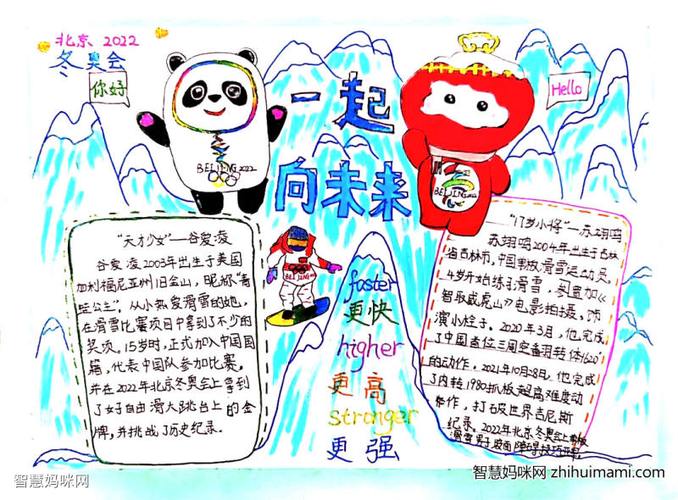 北京 2022
冬奥会
你好
Hello
一起
向未来
BEIJING 2022
BEIJING 2022
BEIJING
"天才少女"—谷爱凌
谷爱凌2003年出生于美国
加利福尼亚州旧金山，昵称"青
蛙公主"，从小热爱滑雪的她，
在滑雪比赛项目中拿到了不少的
奖项。15岁时，正式加入中国国
籍，代表中国队参加比赛，
并在2022年北京冬奥会上拿到
了女子自由滑大跳台上的金
牌，并挑战了历史纪录。
faster
更快
higher
更高
stronger
更强
"17岁小将"—苏翊鸣
苏翊鸣2004年出生于吉林
省吉林市，中国单板滑雪运动员，
4岁开始练习滑雪，
智取威虎山》电影拍摄，饰
演小栓子。2020年3月，他完成
了中国首位三周空翻转体1620°
的动作，2021年10月28日，他完成
了内转1980抓板超高难度动
作，打破世界吉尼斯
纪录。2022年北京冬奥会上
智慧妈咪网
智慧妈咪网 zhihuimami.com